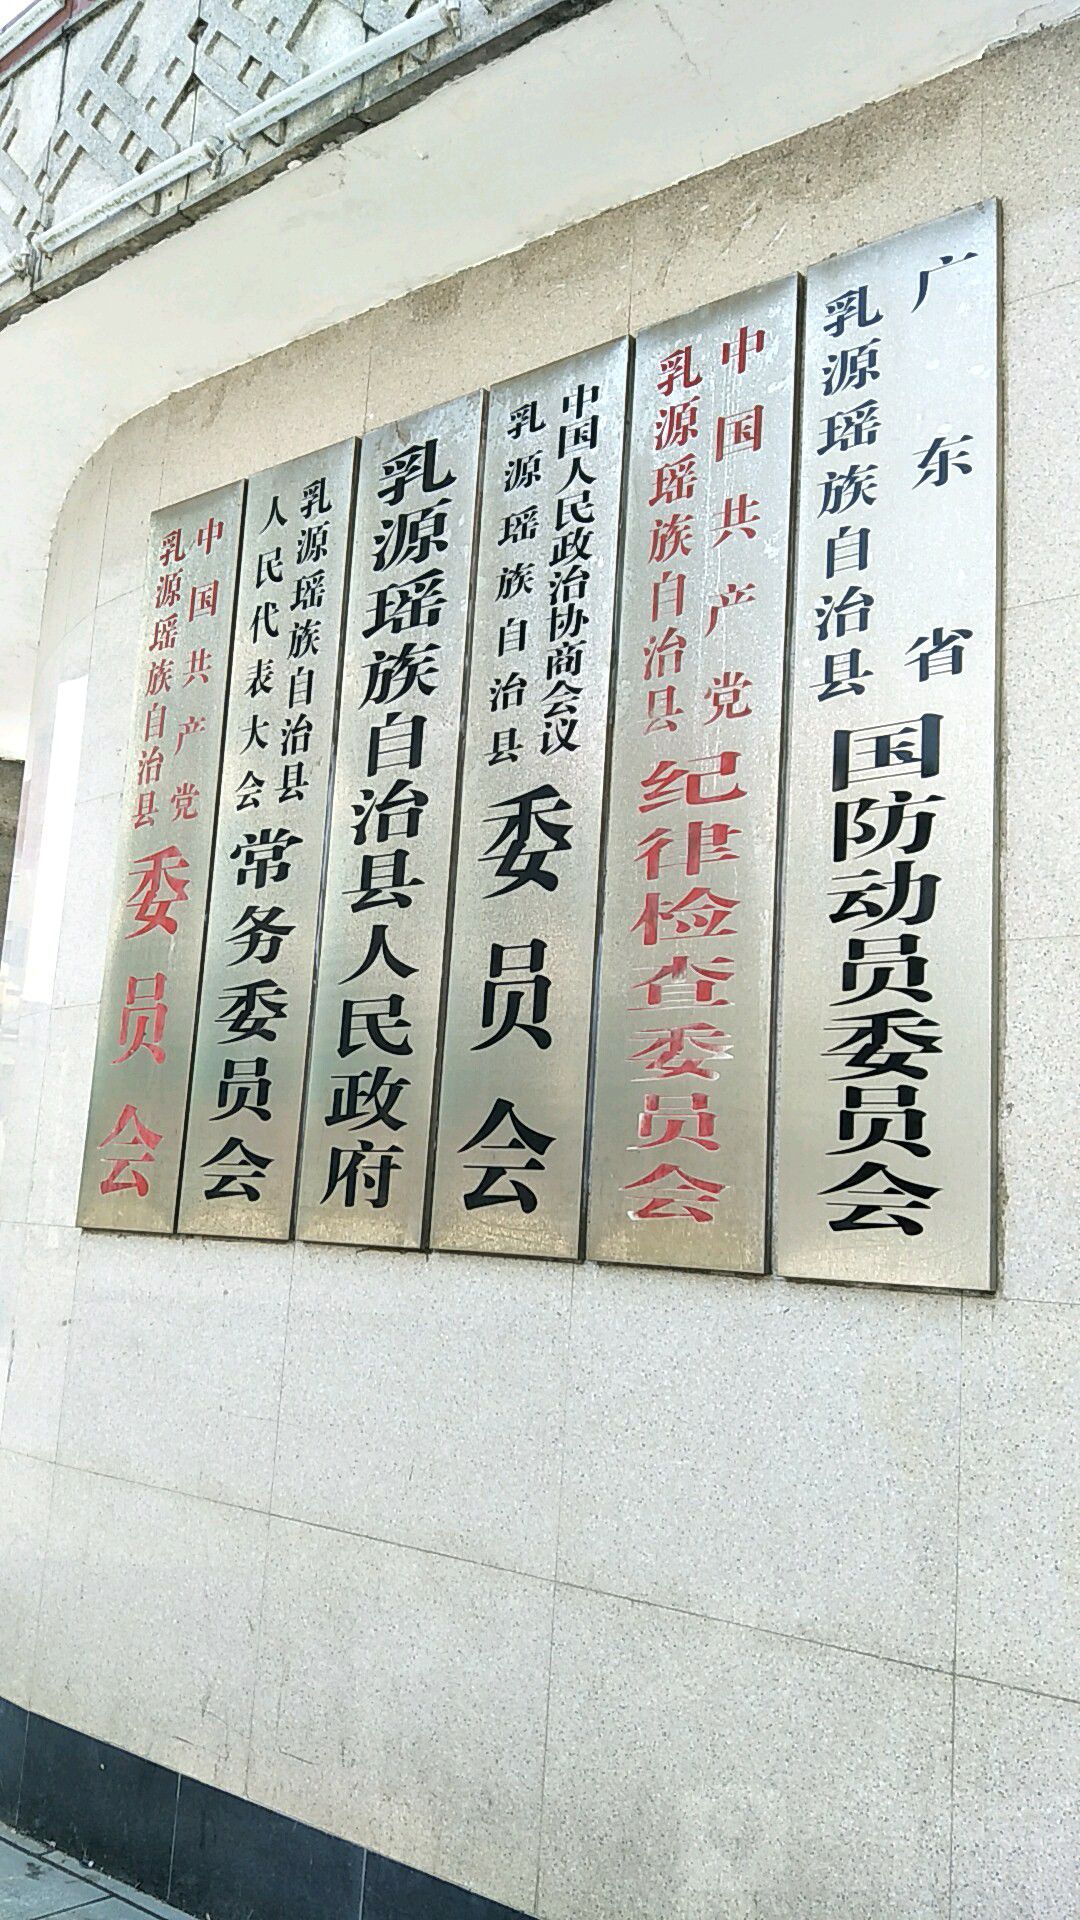 广东省
乳源瑶族自治县
国防动员委员会
中国共产党
乳源瑶族自治县
纪律检查委员会
中国人民政治协商会议
乳源瑶族自治县
委员会
乳源瑶族自治县人民政府
乳源瑶族自治县
人民代表大会
常务委员会
中国共产党
乳源瑶族自治县
委员会